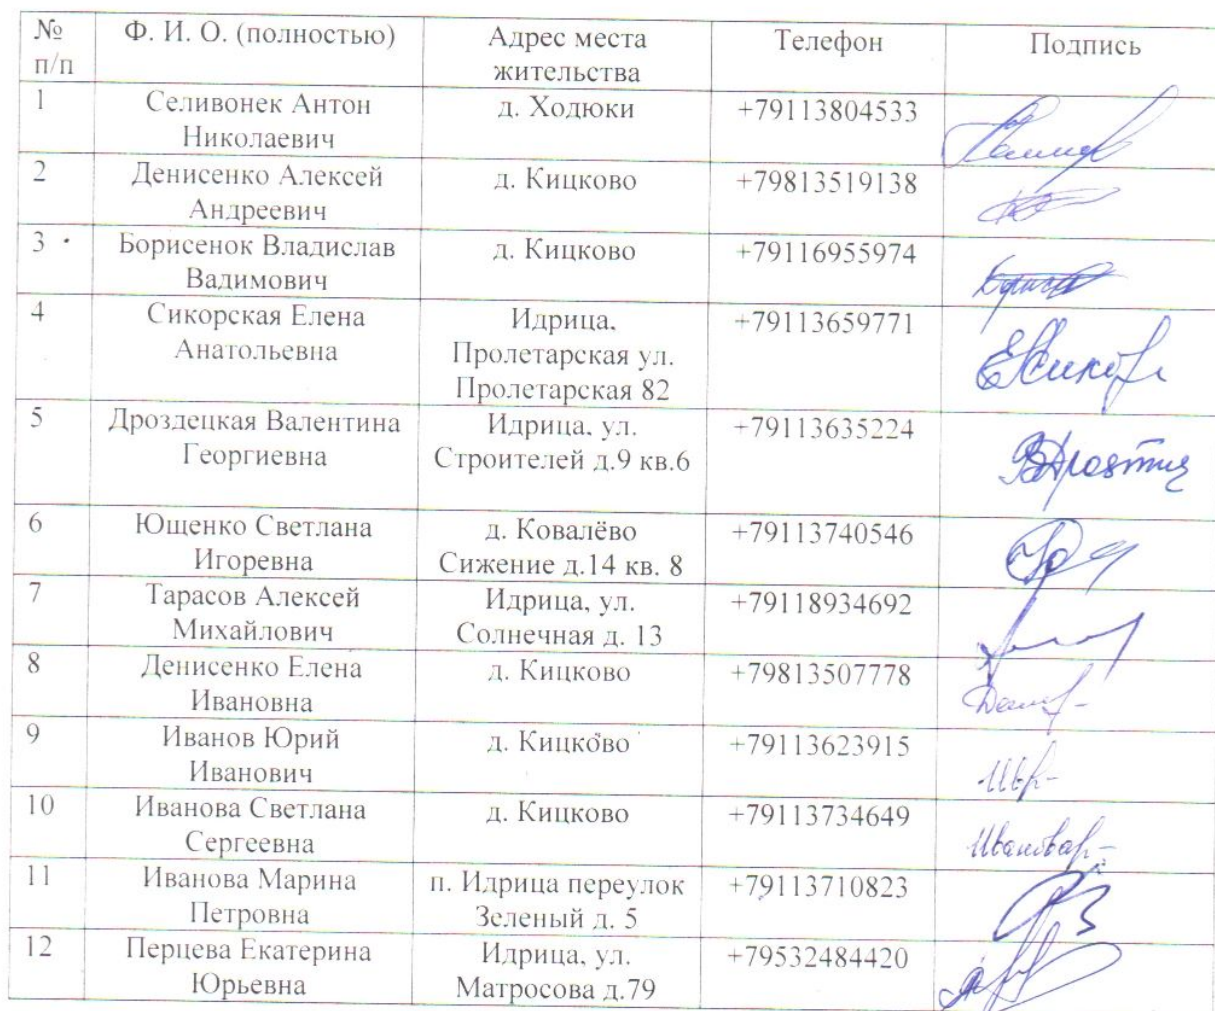 № п/п Ф. И. О. (полностью) Адрес места жительства Телефон Подпись
1 Селивонек Антон Николаевич д. Ходюки +79113804533
2 Денисенко Алексей Андреевич д. Кицково +79813519138
3 Борисенок Владислав Вадимович д. Кицково +79116955974
4 Сикорская Елена Анатольевна Идрица, Пролетарская ул. Пролетарская 82 +79113659771
5 Дроздецкая Валентина Георгиевна Идрица, ул. Строителей д.9 кв.6 +79113635224
6 Ющенко Светлана Игоревна д. Ковалёво Сижение д.14 кв. 8 +79113740546
7 Тарасов Алексей Михайлович Идрица, ул. Солнечная д. 13 +79118934692
8 Денисенко Елена Ивановна д. Кицково +79813507778
9 Иванов Юрий Иванович д. Кицково +79113623915
10 Иванова Светлана Сергеевна д. Кицково +79113734649
11 Иванова Марина Петровна п. Идрица переулок Зеленый д. 5 +79113710823
12 Перцева Екатерина Юрьевна Идрица, ул. Матросова д.79 +79532484420